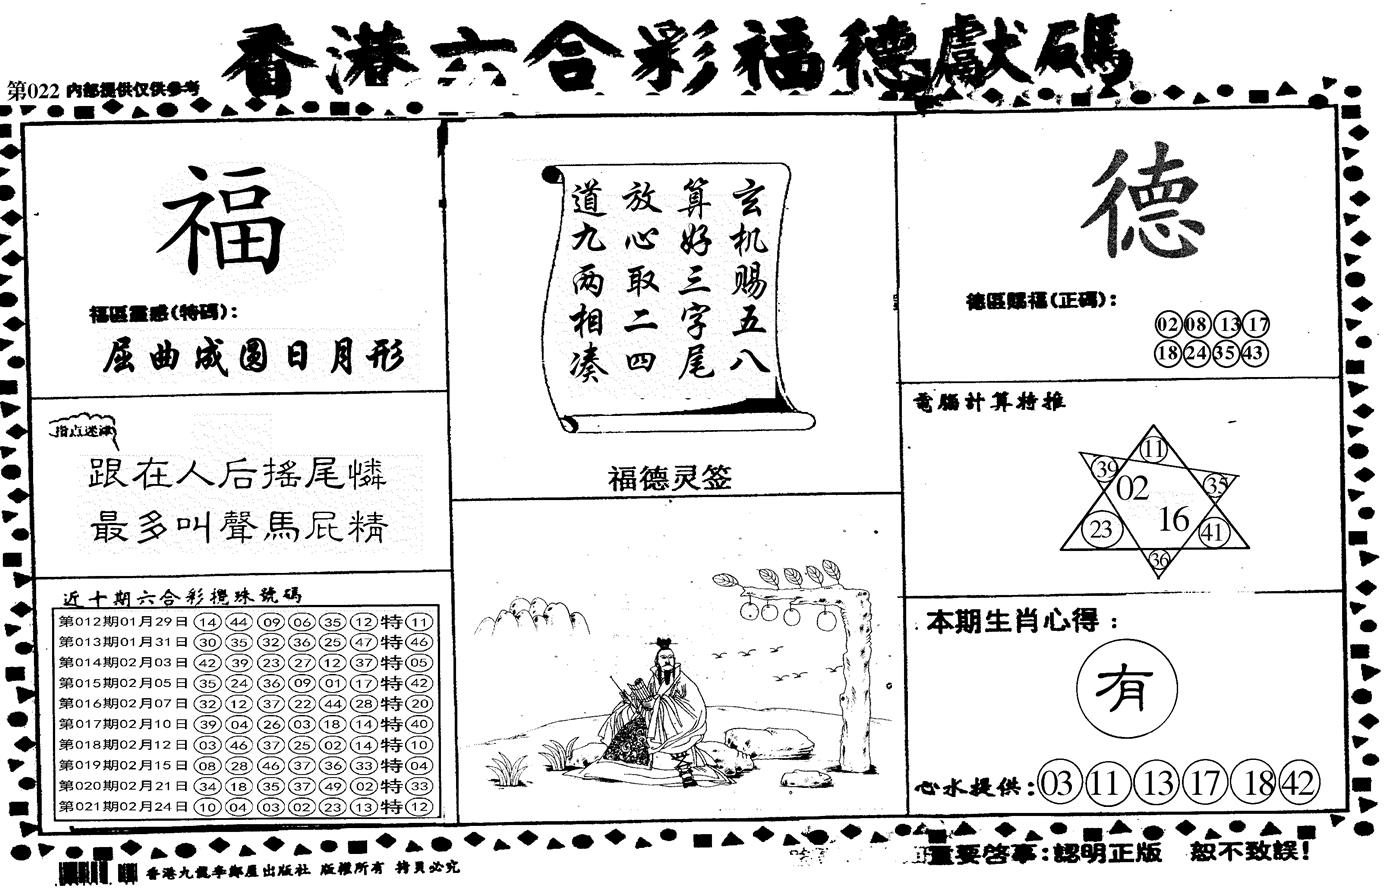 香港六合彩福德獻碼
第022 内部提供仅供参考
福
福區靈感(特碼):
屈曲成圆日月形
指点迷津
跟在人后搖尾憐
最多叫聲馬屁精
近十期六合彩攪珠號碼
第012期01月29日 14 44 09 06 35 12 特 11
第013期01月31日 30 35 32 36 25 47 特 46
第014期02月03日 42 39 23 27 12 37 特 05
第015期02月05日 35 24 36 09 01 17 特 42
第016期02月07日 32 12 37 22 44 28 特 20
第017期02月10日 39 04 26 03 18 14 特 40
第018期02月12日 03 46 37 25 02 14 特 10
第019期02月15日 08 28 46 37 36 33 特 04
第020期02月21日 34 18 35 37 49 02 特 33
第021期02月24日 10 04 03 02 23 13 特 12
玄机赐五八
算好三字尾
放心取二四
道九两相凑
福德灵签
德
德區賜福(正碼):
02 08 13 17
18 24 35 43
電腦計算特推
11
39
35
02
16
23
41
36
本期生肖心得:
有
心水提供:03 11 13 17 18 42
重要啓事:認明正版 恕不致誤!
香港九龍李鄭屋出版社 版權所有 拷貝必究